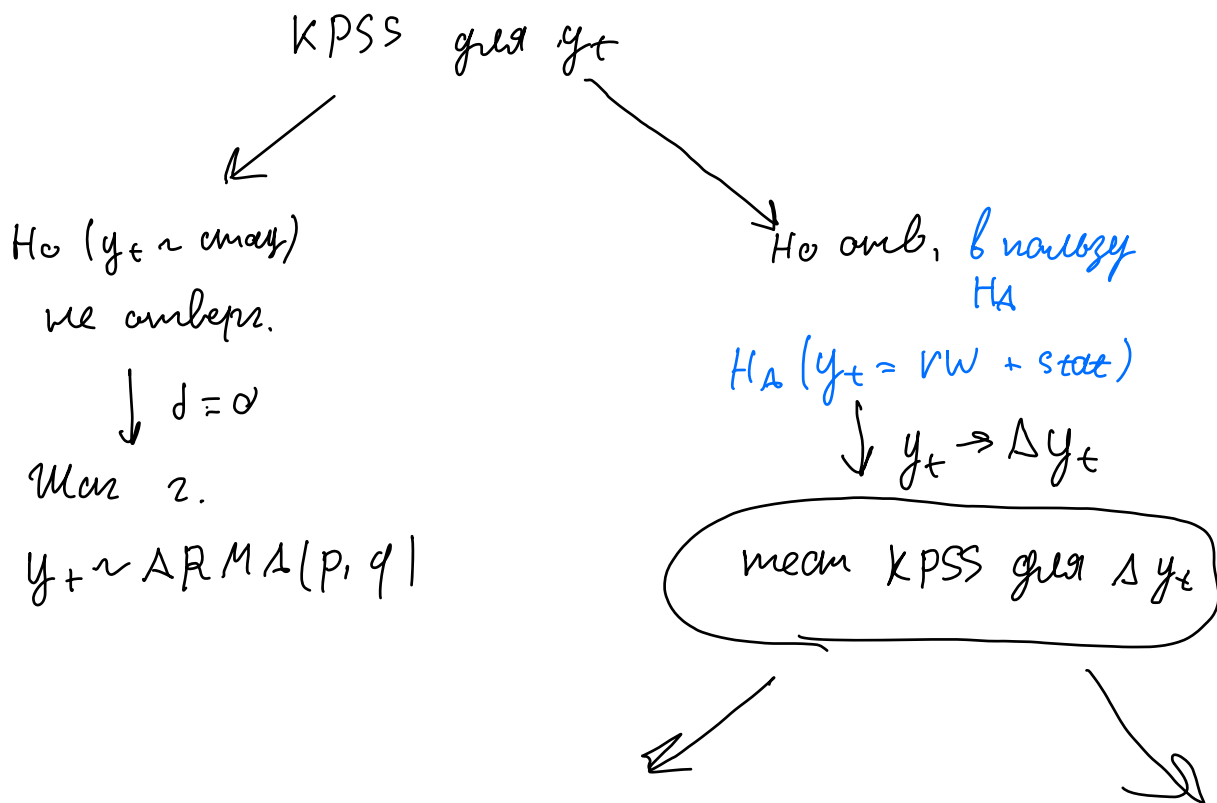 KPSS для yt
H0 (yt ~ стац)
не отверг.
d = 0
Шаг 2.
yt ~ ARMA(p, q)
H0 отв, в пользу
HA
HA (yt = rw + stat)
yt → Δyt
тест KPSS для Δyt